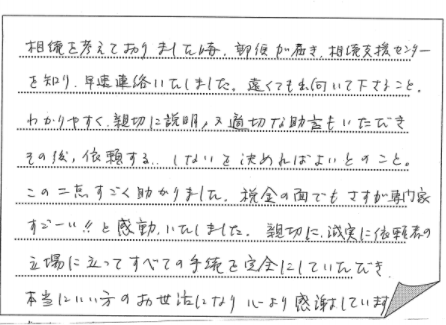 相続を考えておりました時、郵便が届き、相続支援センター
を知り、早速連絡いたしました。遠くても出向いて下さること。
わかりやすく、親切に説明、又適切な助言もいただき
その後、依頼する、しないを決めればよいとのこと。
この二点すごく助かりました。税金の面でもさすが専門家
すごーい!!と感動いたしました。親切に、誠実に依頼者の
立場に立ってすべての手続を完全にしていただき
本当にいい方のお世話になり心より感謝しています